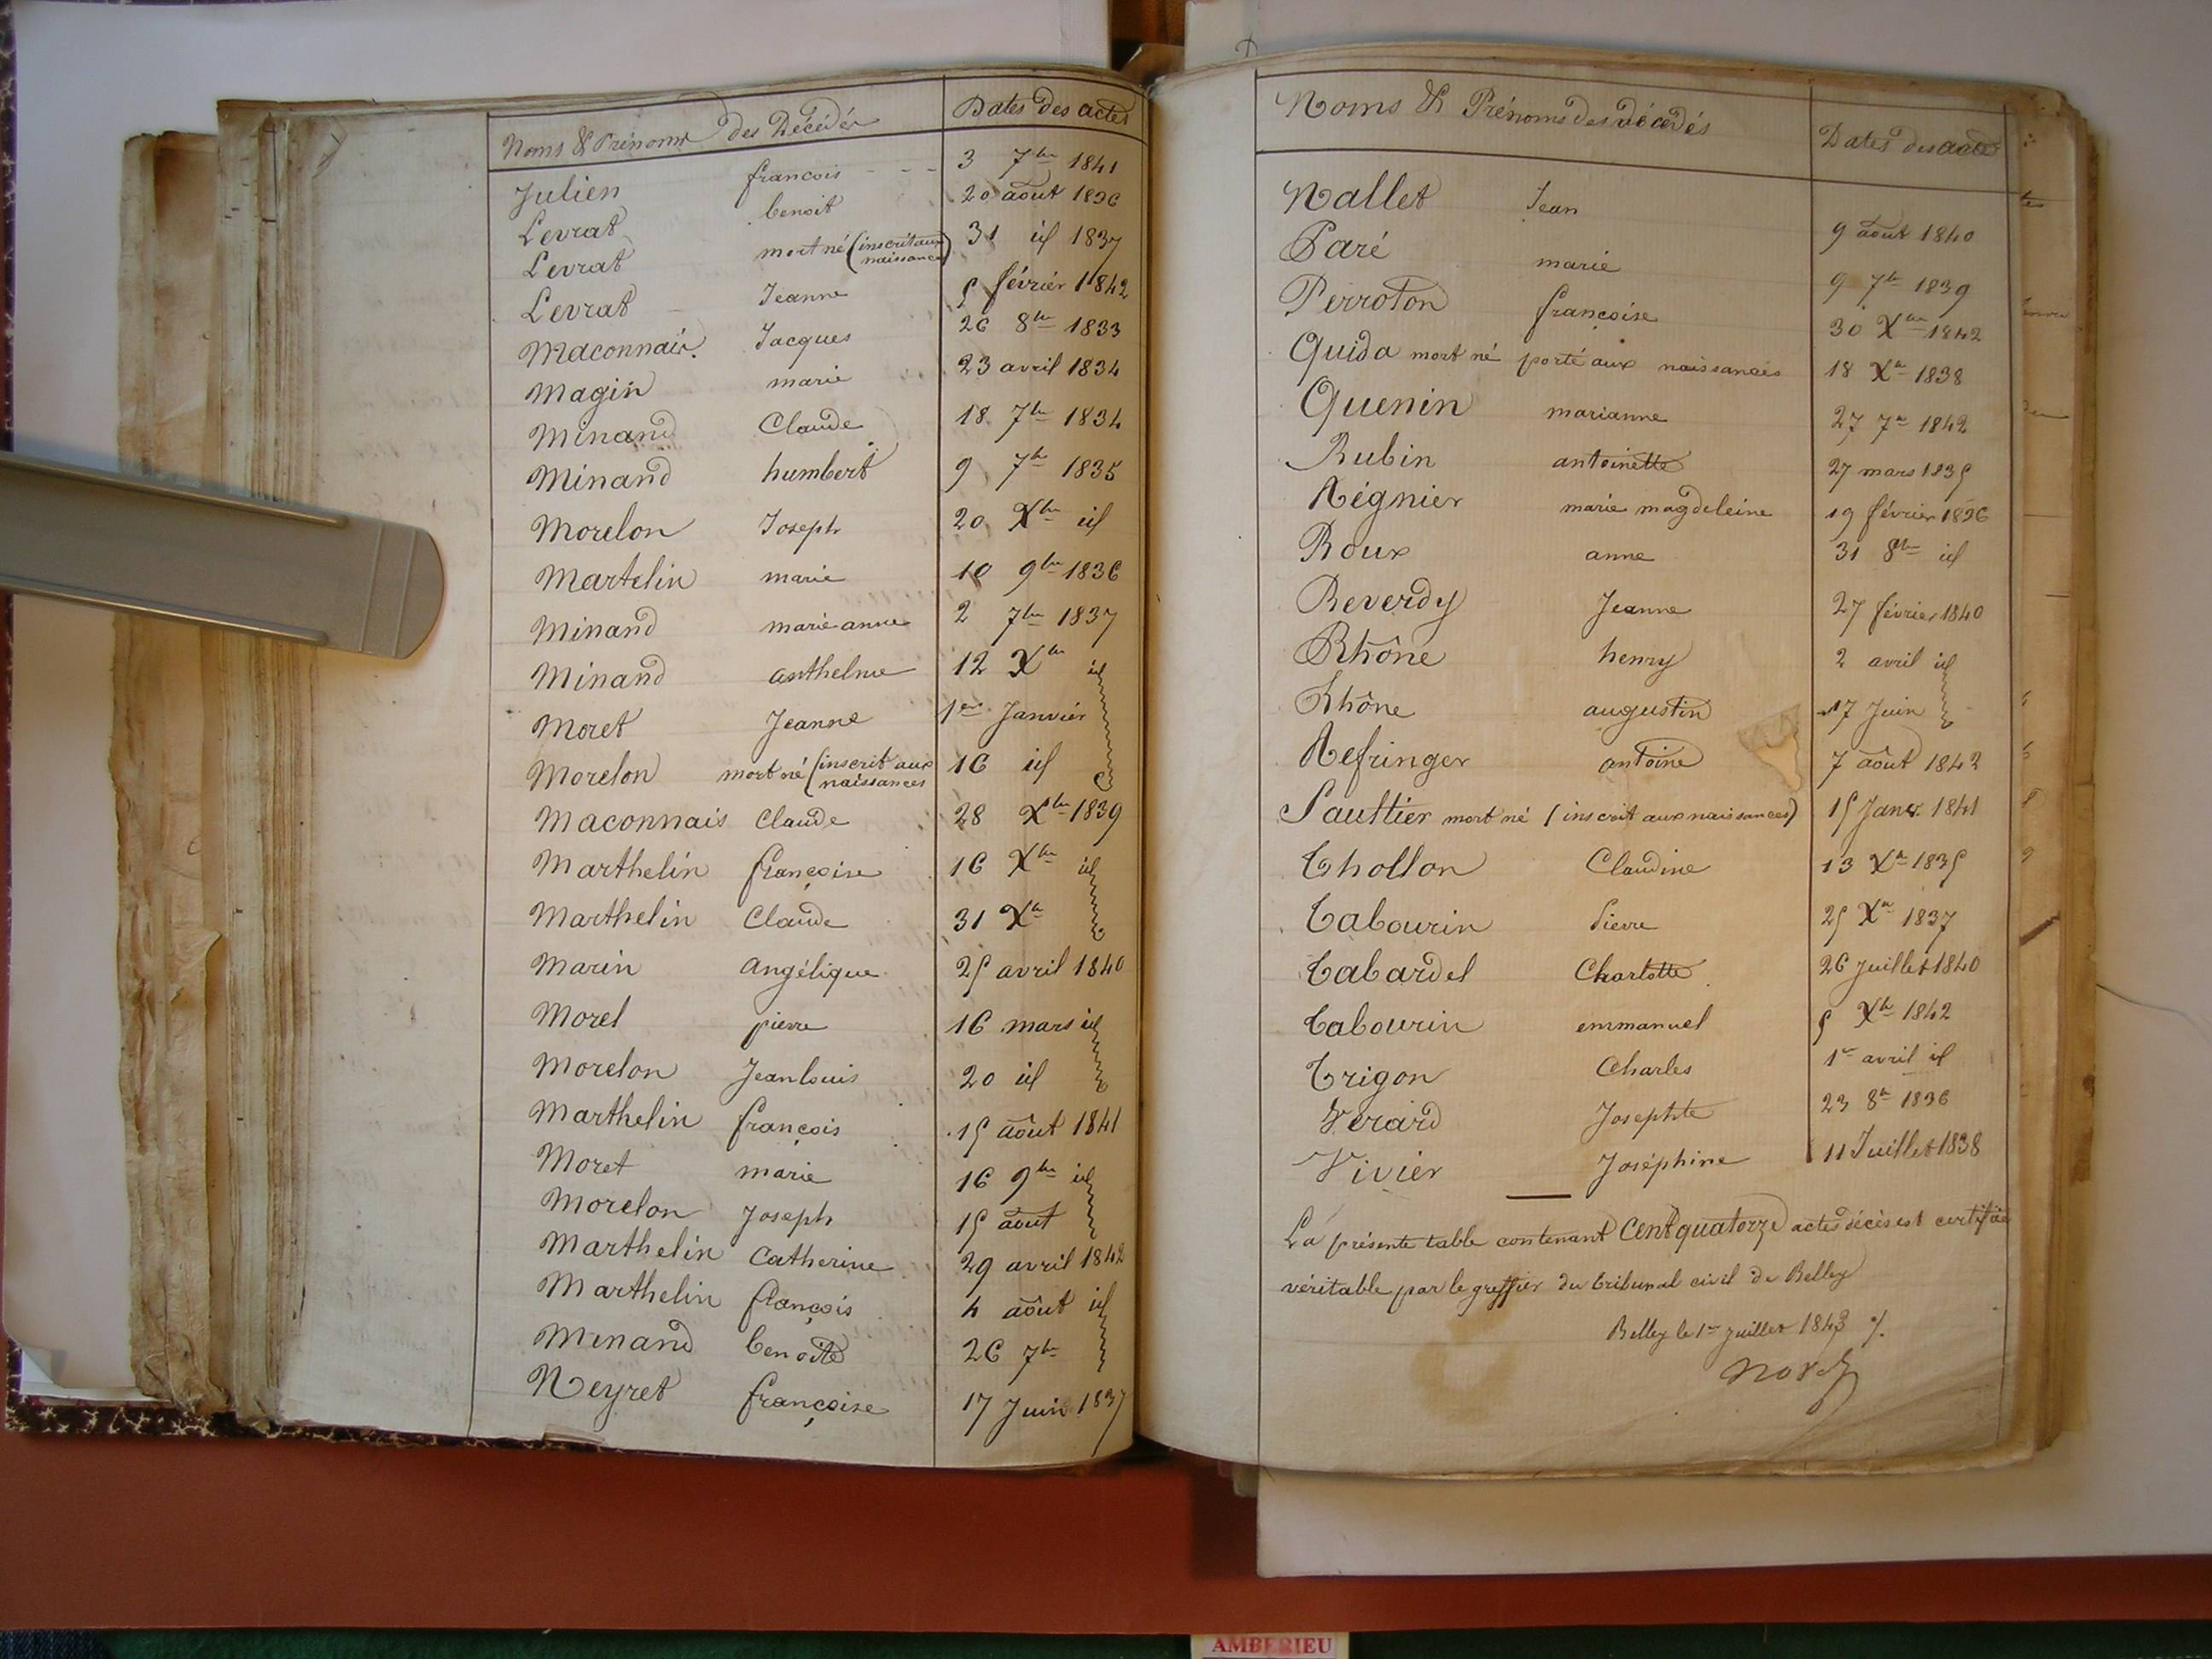 Noms & Prénoms des Décédés Dates des actes
Julien francois - - - 3 7bre 1841
Levrat benoit 20 août 1836
Levrat mort né (inscrit aux naissances) 31 id 1837
Levrat Jeanne 5 février 1842
Maconnais Jacques 26 8bre 1833
Magin marie 23 avril 1834
Minand Claude 18 7bre 1834
Minand humbert 9 7bre 1835
Morelon Joseph 20 Xbre id
Martelin marie 10 9bre 1836
Minand marie anne 2 7bre 1837
Minand anthelme 12 Xbre id
Moret Jeanne 1er Janvier
Morelon mort né (inscrit aux naissances 16 id
Maconnais Claude 28 Xbre 1839
Marthelin françoise 16 Xbre id
Marthelin Claude 31 Xbre
Marin angélique 25 avril 1840
Morel pierre 16 mars id
Morelon Jean Louis 20 id
Marthelin françois 15 août 1841
Moret marie 16 9bre id
Morelon Joseph 15 août
Marthelin Catherine 29 avril 1842
Marthelin françois 4 août id
Minand benoite 26 7bre
Neyret françoise 17 Juin 1837
Noms & Prénoms des décédés Dates des actes
Nallet Jean 9 août 1840
Paré marie 9 7bre 1839
Perroton françoise 30 Xbre 1842
Quida mort né porté aux naissances 18 Xbre 1838
Quenin marianne 27 7bre 1842
Rubin antoinette 27 mars 1835
Régnier marie magdeleine 19 février 1836
Roux anne 31 8bre id
Reverdy Jeanne 27 février 1840
Rhône henry 2 avril id
Rhône augustin 17 Juin
Refringer antoine 7 août 1842
Sauttier mort né (inscrit aux naissances) 15 Janer 1841
Thollon Claudine 13 Xbre 1835
Tabourin Pierre 25 Xbre 1837
Tabardel Charlotte 26 Juillet 1840
Tabourin emmanuel 5 Xbre 1842
Trigon Charles 1er avril id
Verard Josephte 23 8bre 1836
Vivier Joséphine 11 Juillet 1838
La présente table contenant Cent quatorze actes décès est certifiée
véritable par le greffier du tribunal civil de Belley
Belley le 1er juillet 1843 %
AMBERIEU